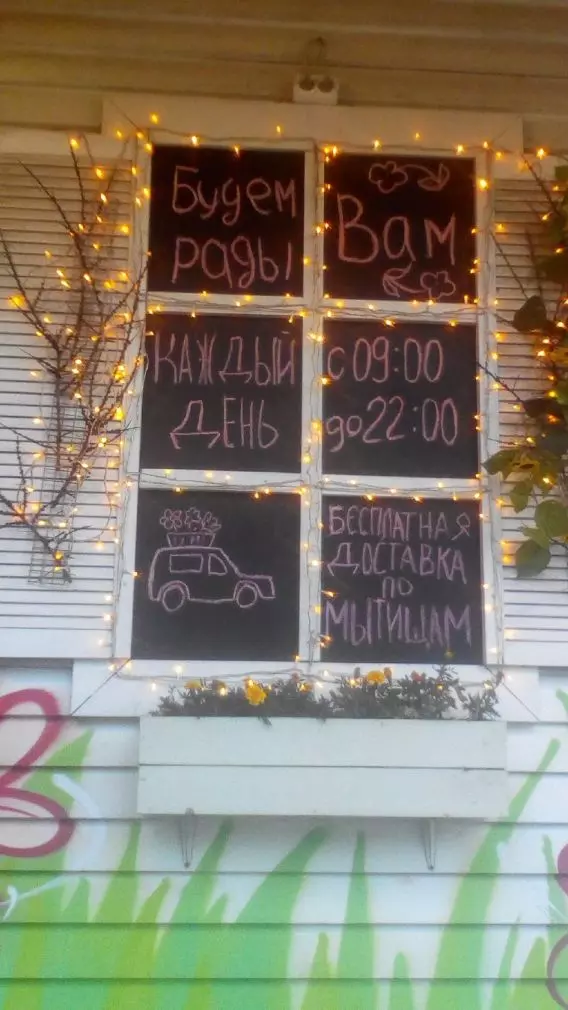 Будем
рады
Вам
КАЖДЫЙ
ДЕНЬ
с 09:00
до 22:00
БЕСПЛАТНАЯ
ДОСТАВКА
ПО
МЫТИЩАМ